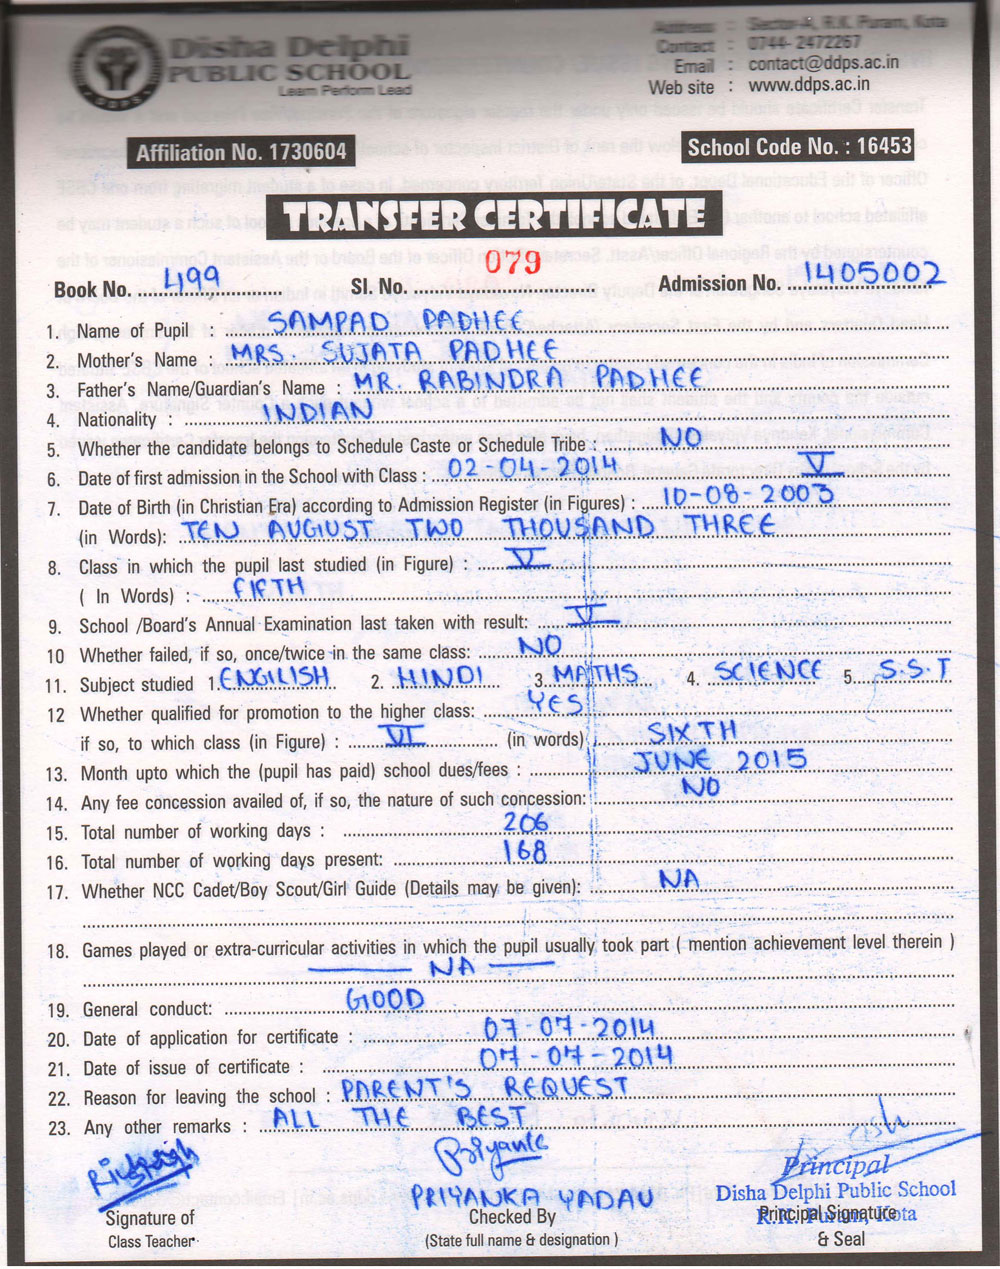 Disha Delphi
PUBLIC SCHOOL
Learn Perform Lead
DDPS
Address : Sector-A, R.K. Puram, Kota
Contact : 0744- 2472267
Email : contact@ddps.ac.in
Web site : www.ddps.ac.in
Affiliation No. 1730604
School Code No. : 16453
TRANSFER CERTIFICATE
Book No. 499 Sl. No. 079 Admission No. 1405002
1. Name of Pupil : SAMPAD PADHEE
2. Mother's Name : MRS. SUJATA PADHEE
3. Father's Name/Guardian's Name : MR. RABINDRA PADHEE
4. Nationality : INDIAN
5. Whether the candidate belongs to Schedule Caste or Schedule Tribe : NO
6. Date of first admission in the School with Class : 02-04-2014 V
7. Date of Birth (in Christian Era) according to Admission Register (in Figures) : 10-08-2003
(in Words): TEN AUGIUST TWO THOUSAND THREE
8. Class in which the pupil last studied (in Figure) : V
( In Words) : FIFTH
9. School /Board's Annual Examination last taken with result: V
10 Whether failed, if so, once/twice in the same class: NO
11. Subject studied 1. ENGILISH 2. HINDI 3. MATHS 4. SCIENCE 5. S.S.T
12 Whether qualified for promotion to the higher class: YES
if so, to which class (in Figure) : VI (in words) SIXTH
13. Month upto which the (pupil has paid) school dues/fees : JUNE 2015
14. Any fee concession availed of, if so, the nature of such concession: NO
15. Total number of working days : 206
16. Total number of working days present: 168
17. Whether NCC Cadet/Boy Scout/Girl Guide (Details may be given): NA
18. Games played or extra-curricular activities in which the pupil usually took part ( mention achievement level therein )
NA
19. General conduct: GOOD
20. Date of application for certificate : 07-07-2014
21. Date of issue of certificate : 07-07-2014
22. Reason for leaving the school : PARENT'S REQUEST
23. Any other remarks : ALL THE BEST
Priyanka
PRIYANKA YADAV
Principal
Disha Delphi Public School
R.K. Puram, Kota
Signature of
Class Teacher
Checked By
(State full name & designation )
Principal Signature
& Seal